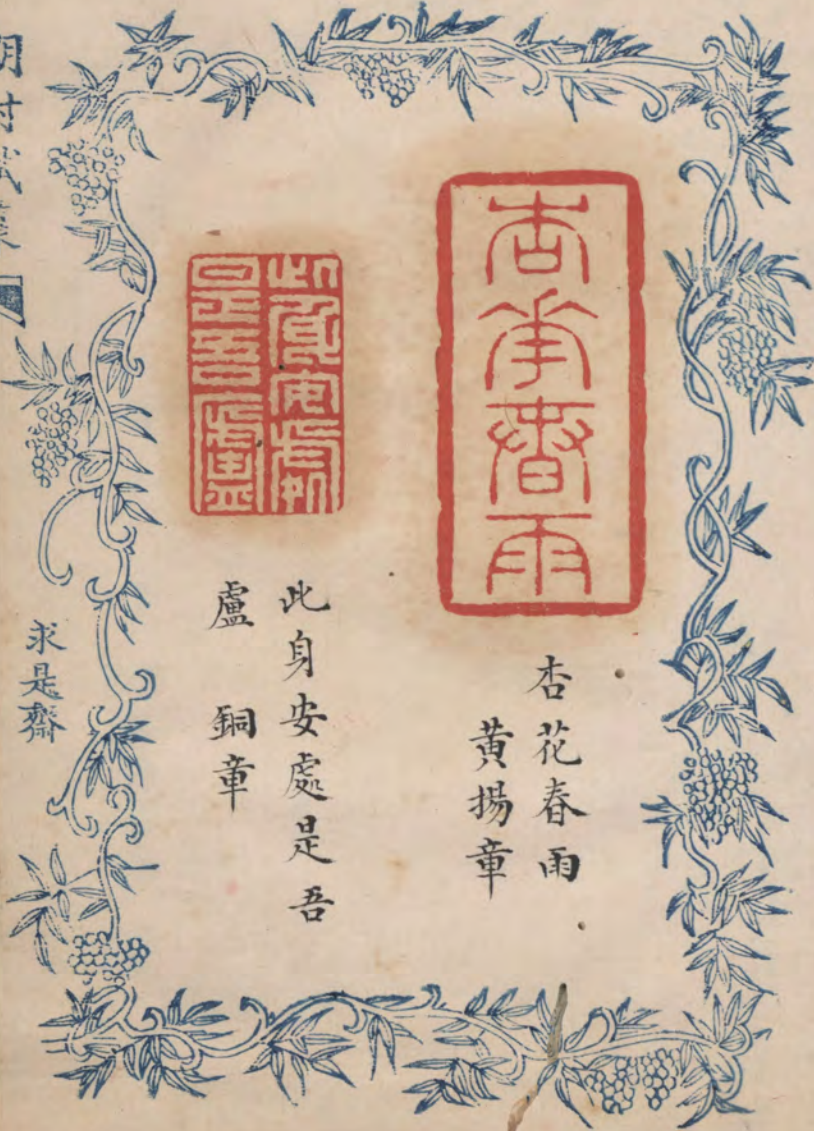 杏花春雨
杏花春雨
黃揚章
此身安處
是吾廬
此身安處是吾
盧　銅章
求是齋